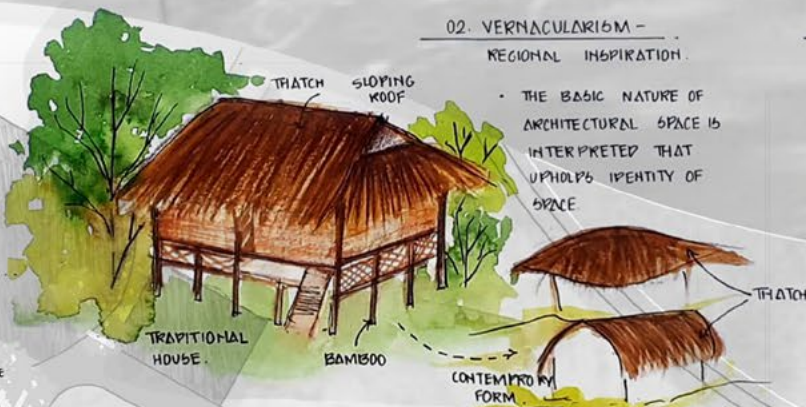 02. VERNACULARISM -
REGIONAL INSPIRATION.
• THE BASIC NATURE OF
ARCHITECTURAL SPACE IS
INTERPRETED THAT
UPHOLDS IDENTITY OF
SPACE
THATCH
SLOPING
ROOF
THATCH
TRADITIONAL
HOUSE.
BAMBOO
CONTEMPRORY
FORM.